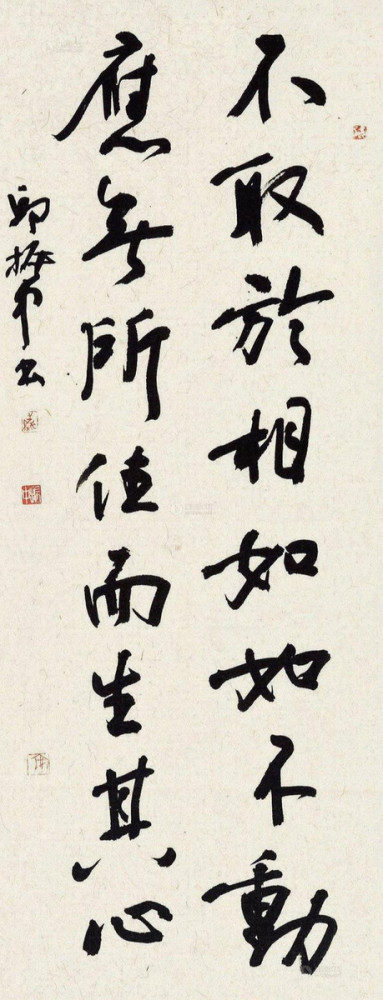 不取於相如如不動
應無所住而生其心
邱振中書